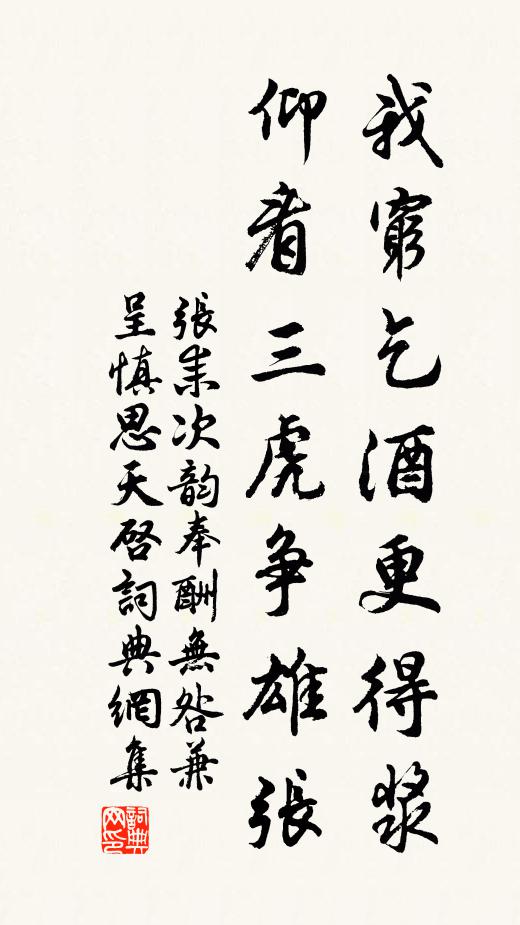 我窮乞酒更得漿
仰看三虎争雄張
張耒次韵奉酬無咎兼
呈慎思天啓詞典網集
詞典网印